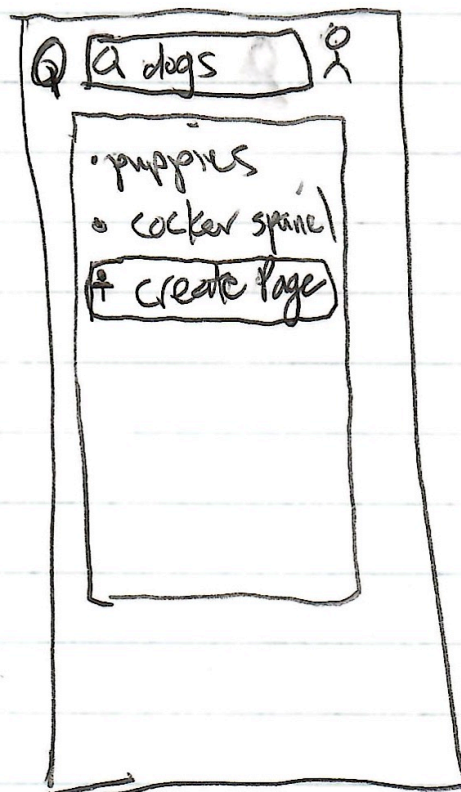 Q Q dogs
• puppies
• cocker spinel
+ create Page